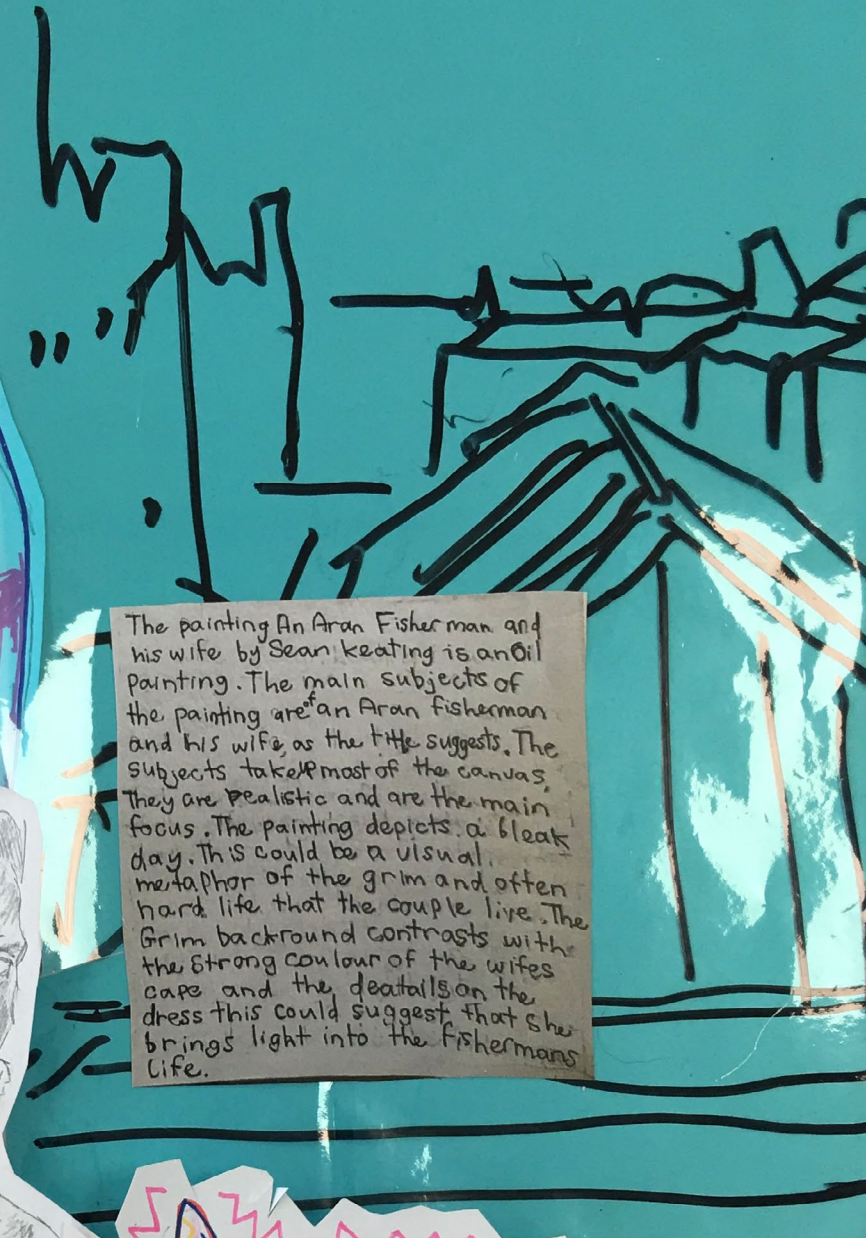 The painting An Aran Fisherman and
his wife by Sean keating is an oil
painting. The main subjects of
the painting are of an Aran fisherman
and his wife, as the title suggests. The
subjects take up most of the canvas,
They are realistic and are the main
focus. The painting depicts a bleak
day. This could be a visual
metaphor of the grim and often
hard life that the couple live. The
Grim backround contrasts with
the strong coulour of the wifes
cape and the deatails on the
dress this could suggest that she
brings light into the fishermans
life.